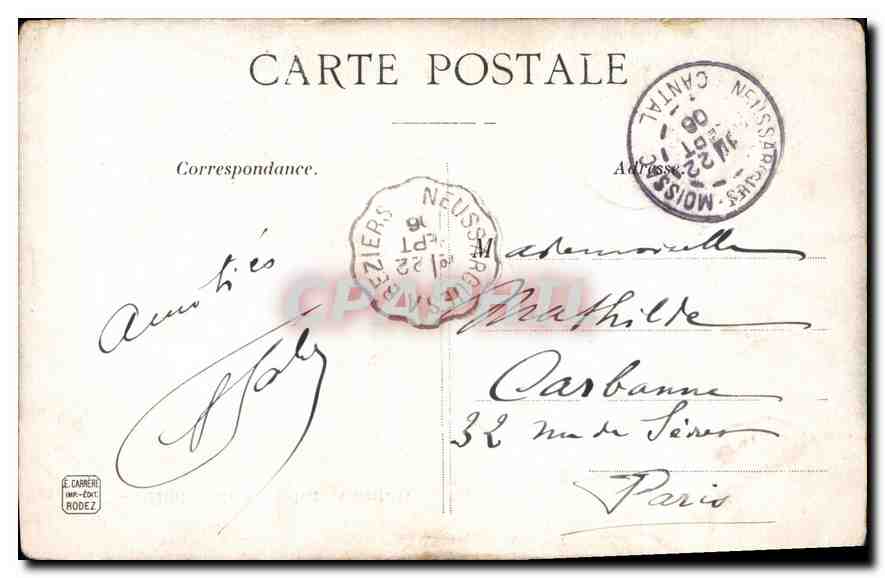 CARTE POSTALE
Correspondance.
Adresse.
NEUSSARGUES-MOISSAC
CANTAL
22
SEPT
06
NEUSSARGUES A BEZIERS
22
SEPT
06
CPAPHIL
Amitiés
Mademoiselle
Mathilde
Carbanne
32 rue de Sèvres
Paris
E. CARRÈRE
IMP.-ÉDIT.
RODEZ